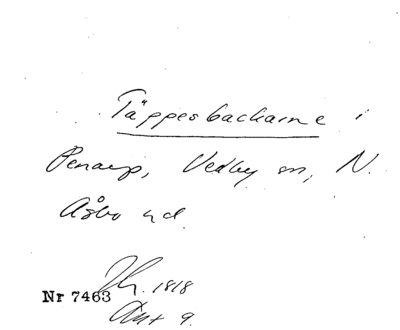 Täppesbackarne i
Penarp, Vedby sn, N.
Åsbo hd.
1818
Nr 7463
Akt 9.